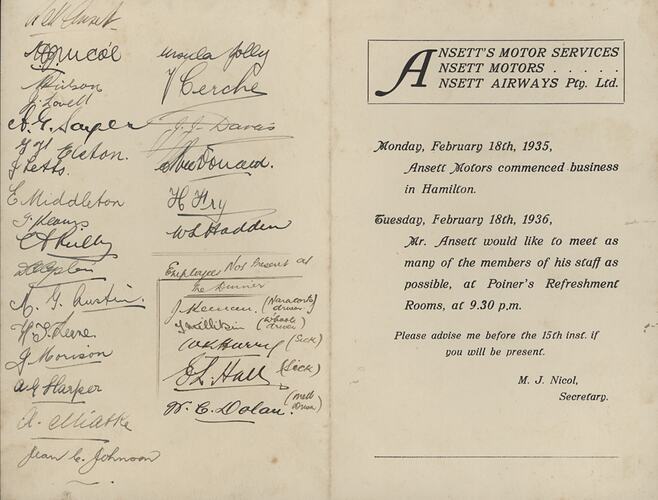 Ursula Jolly
V Cerche
Wilson
J. Lovell
A. G. Sayer
J. J. Davis
Elston.
J Letts.
MacDonald.
E Middleton
H Fry
J. Kearns
W L Hadden
Employees Not Present at
The Dinner
A. G. Austin.
J. Keenan. (Naracoorte driver)
J Millikin (Whoorel driver)
H. J. Keene.
(Sick)
G Morrison
E L Hall (Sick)
A G Harper
W. C. Dolan. (Melb Driver)
A. Miatke
Jean C. Johnson
ANSETT'S MOTOR SERVICES
ANSETT MOTORS . . . . .
ANSETT AIRWAYS Pty. Ltd.
Monday, February 18th, 1935,
Ansett Motors commenced business
in Hamilton.
Tuesday, February 18th, 1936,
Mr. Ansett would like to meet as
many of the members of his staff as
possible, at Poiner's Refreshment
Rooms, at 9.30 p.m.
Please advise me before the 15th inst. if
you will be present.
M. J. Nicol,
Secretary.